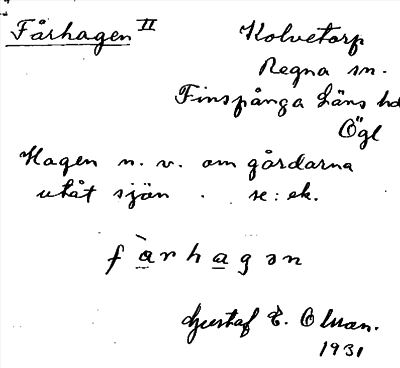 Fårhagen II
Kolvetorp
Regna sn.
Finspånga Läns hd
Ögl
Hagen n. v. om gårdarna
utåt sjön . se: ek.
fàrhagən
Gustaf E. Olsson.
1931